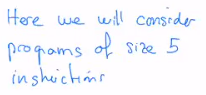 Here we will consider
programs of size 5
instructions